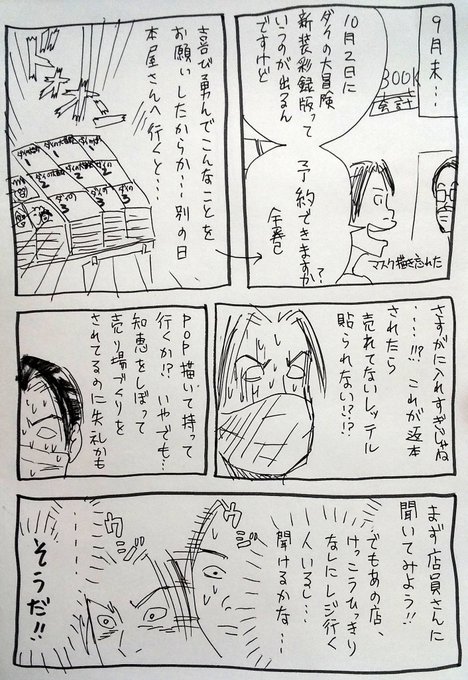 9月末…
BOOK
会計
10月2日に
ダイの大冒険
新装彩録版って
いつのが出るん
ですけど
予約できますか?
全巻
マスク描き忘れた
喜び勇んでこんなことを
お願いしたからか…別の日
本屋さんへ行くと…
ダイの大冒険
1
1
1
2
2
2
ダイの
3
3
3
さすがに入れすぎじゃね
…!!? これが返本
されたら
売れてないレッテル
貼られない!?!?
POP描いて持って
行くか!? いやでも…
知恵をしぼって
売り場づくりを
されてるのに失礼かも
まず店員さんに
聞いてみよう!!
でもあの店、
けっこうひっきり
なしにレジ行く
人いるし…
聞けるかな…
ウジ
ウジ
そうだ!!